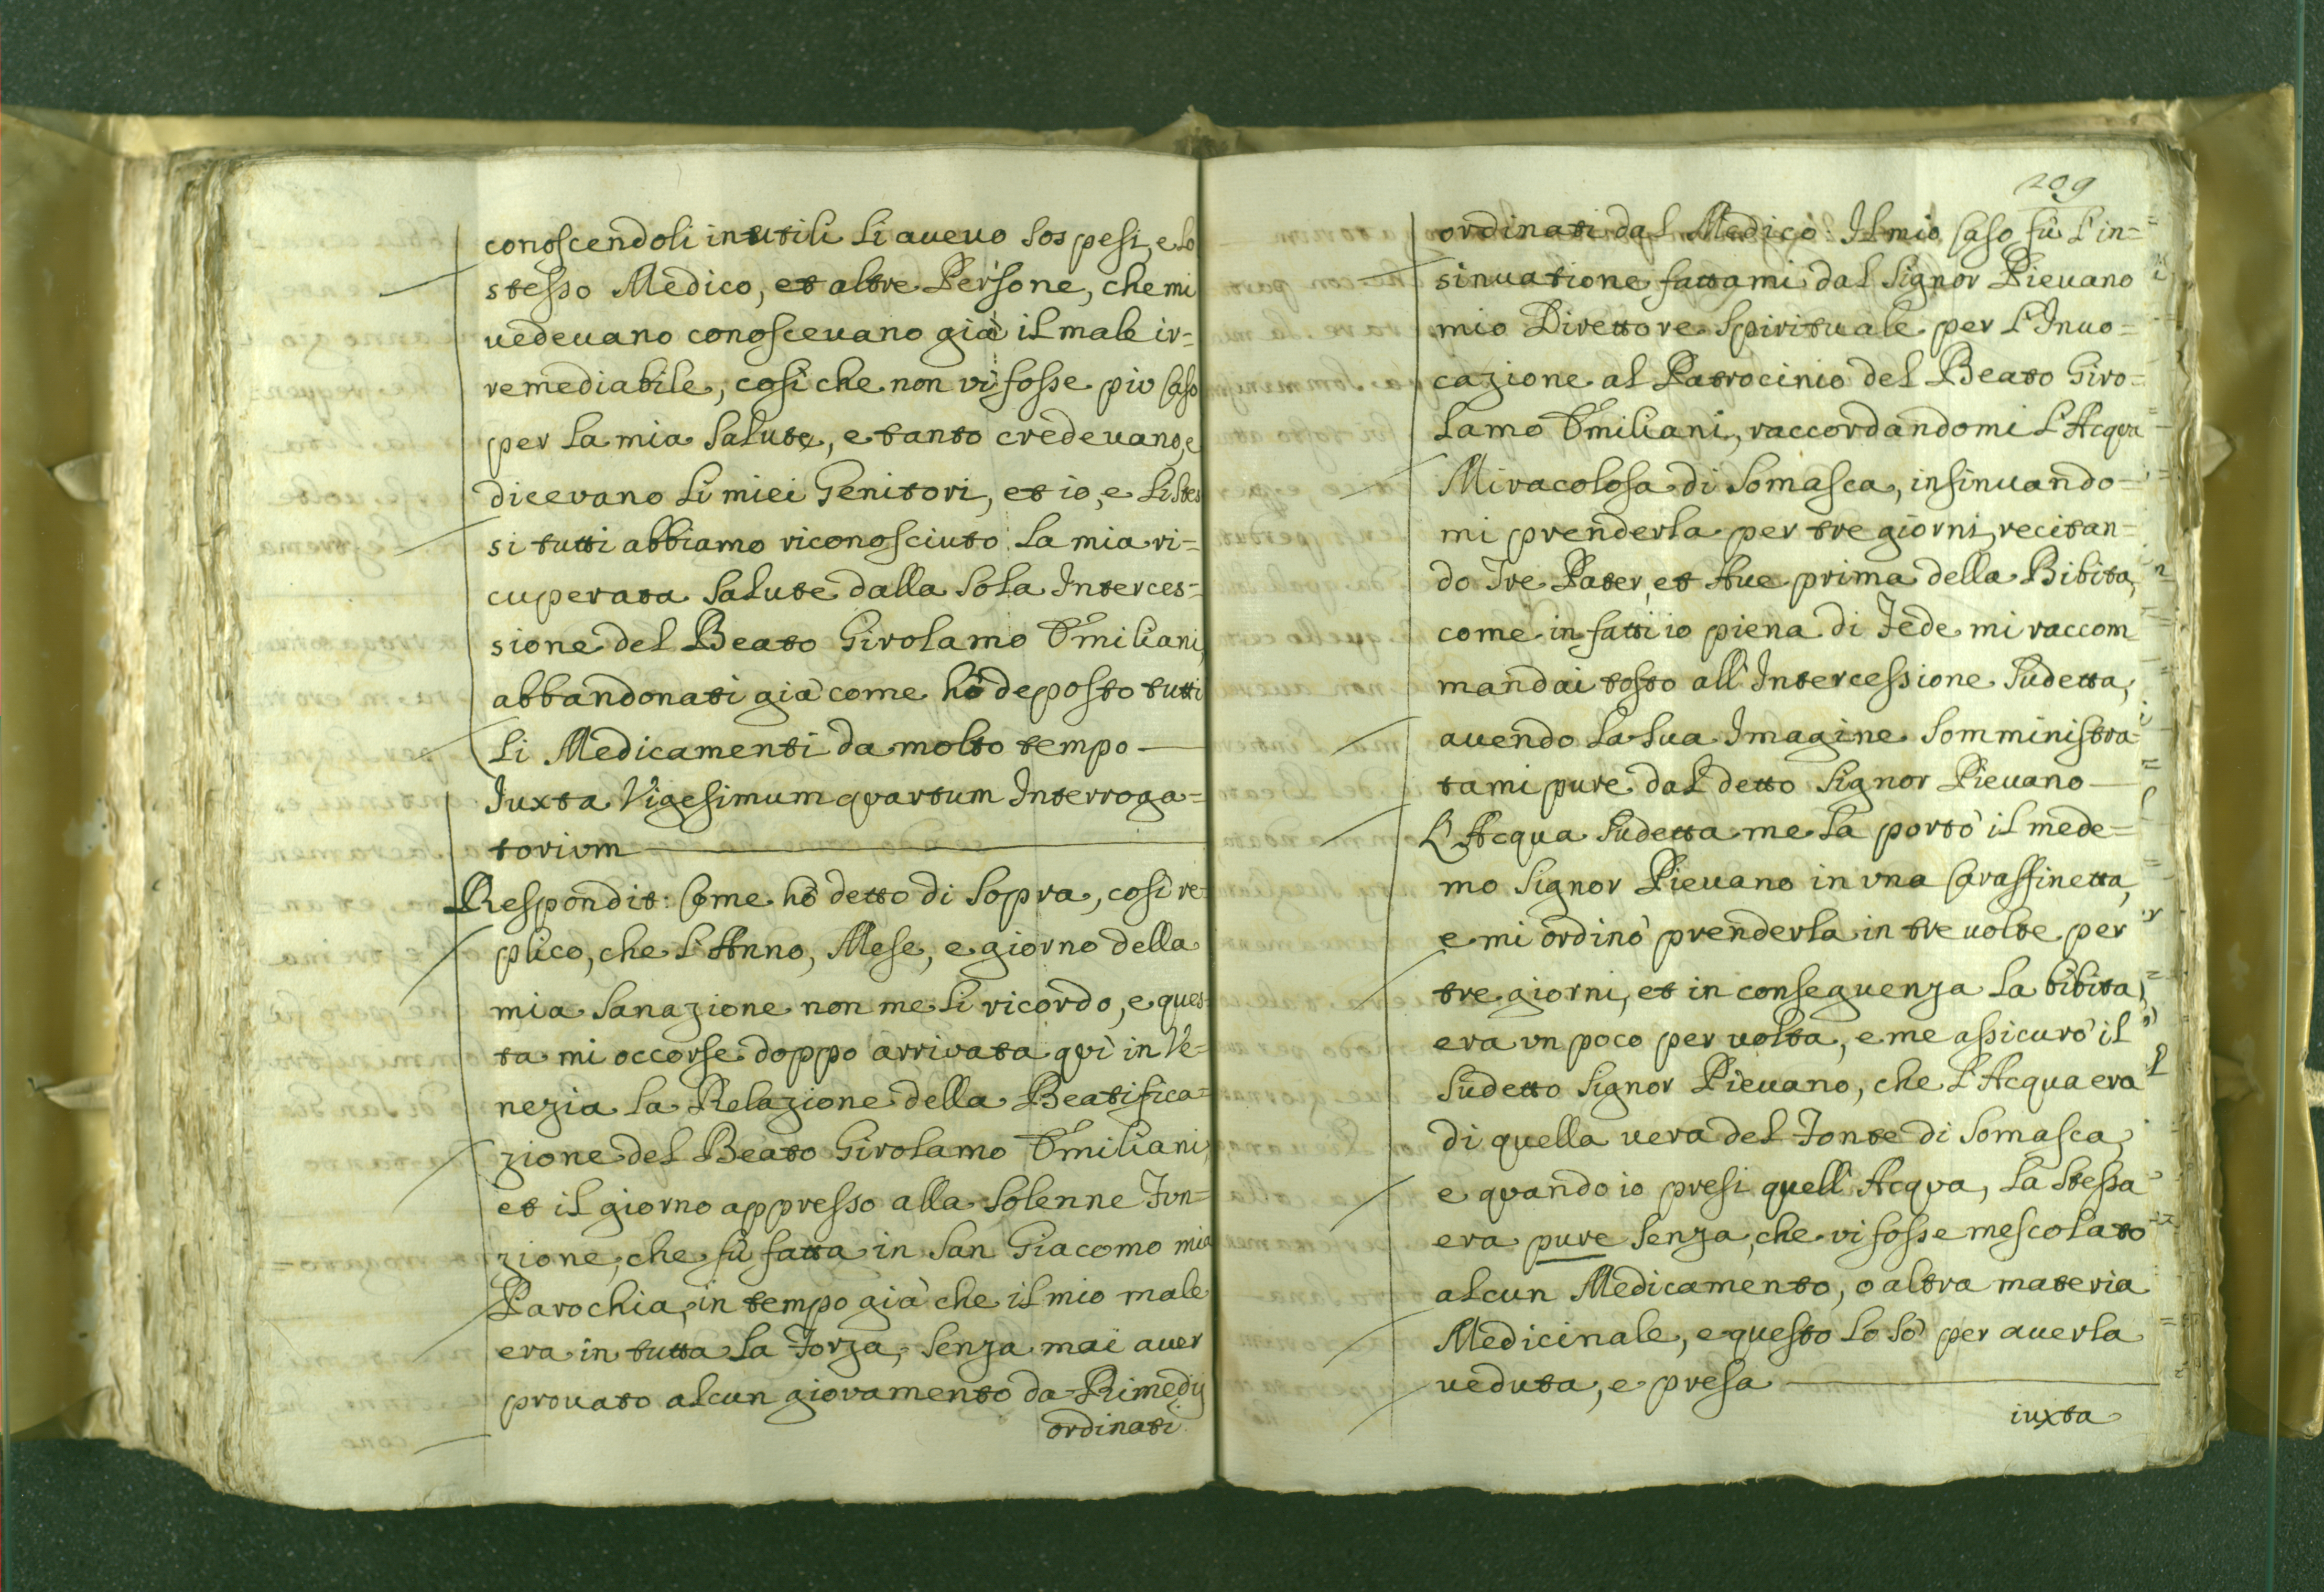 conoscendoli inutili li avevo sospesi, e lo
stesso Medico, et altre Persone, che mi
vedevano conoscevano già il male ir=
remediabile, così che non vi fosse più caso
per la mia salute, e tanto credevano, e
dicevano li miei Genitori, et io, e li stes
si tutti abbiamo riconosciuto la mia ri=
cuperata salute dalla sola Interces=
sione del Beato Girolamo Emiliani,
abbandonati già come hò deposto tutti
li Medicamenti da molto tempo —
Iuxta Vigesimum quartum Interroga=
torium —
Respondit: Come hò detto di sopra, così re=
plico, che l'Anno, Mese, e giorno della
mia sanazione non me li ricordo, e ques=
ta mi occorse doppo arrivata quì in Ve=
nezia la Relazione della Beatifica=
zione del Beato Girolamo Emiliani,
et il giorno appresso alla solenne Fun=
zione, che fù fatta in San Giacomo mia
Parochia, in tempo già che il mio male
era in tutta la Forza, senza mai aver
provato alcun giovamento da Rimedij
ordinati
209
ordinati dal Medico: Il mio caso fù l'in=
sinuatione fattami dal Signor Pievano
mio Direttore spirituale per l'Invo=
cazione al Patrocinio del Beato Giro=
lamo Emiliani, raccordandomi l'Acqua
Miracolosa di Somasca, insinuando=
mi prenderla per tre giorni, recitan=
do Tre Pater, et Ave prima della Bibita,
come in fatti io piena di Fede mi raccom
mandai tosto all'Intercessione sudetta,
avendo la sua Imagine somministra=
tami pure dal detto Signor Pievano —
L'Acqua sudetta me la portò il mede=
mo Signor Pievano in una Caraffinetta,
e mi ordinò prenderla in tre volte per
tre giorni, et in conseguenza la bibita
era un poco per volta, e me assicurò il
sudetto Signor Pievano, che l'Acqua era
di quella vera del Fonte di Somasca,
e quando io presi quell'Acqua, la stessa
era pure senza, che vi fosse mescolato
alcun Medicamento, o altra materia
Medicinale, e questo lo sò per averla
veduta, e presa —
iuxta